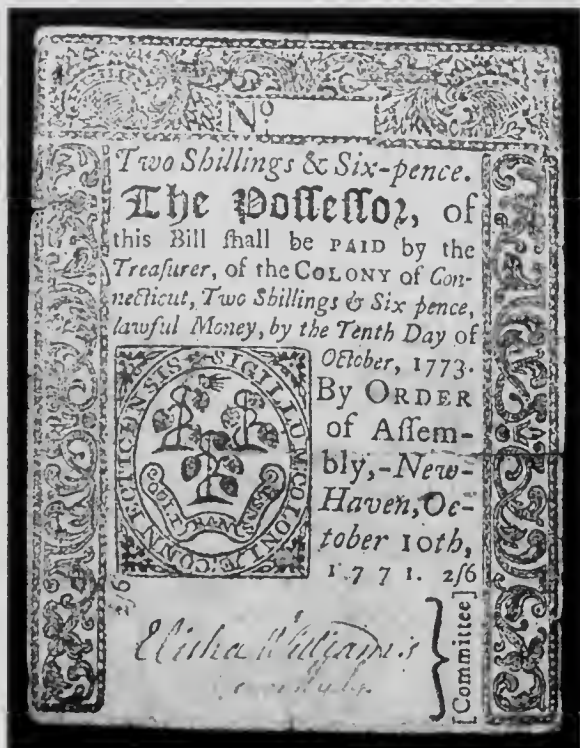 No
Two Shillings & Six-pence.
The Poſſeſſor, of
this Bill ſhall be PAID by the
Treaſurer, of the COLONY of Con-
necticut, Two Shillings & Six pence,
lawful Money, by the Tenth Day of
October, 1773.
By ORDER
of Aſſem-
bly,-New-
Haven, Oc-
tober 10th,
1771. 2ſ6
SIGILLUM COLONIÆ CONNECTICENSIS
2ſ6
Elisha Williams
[Committee]